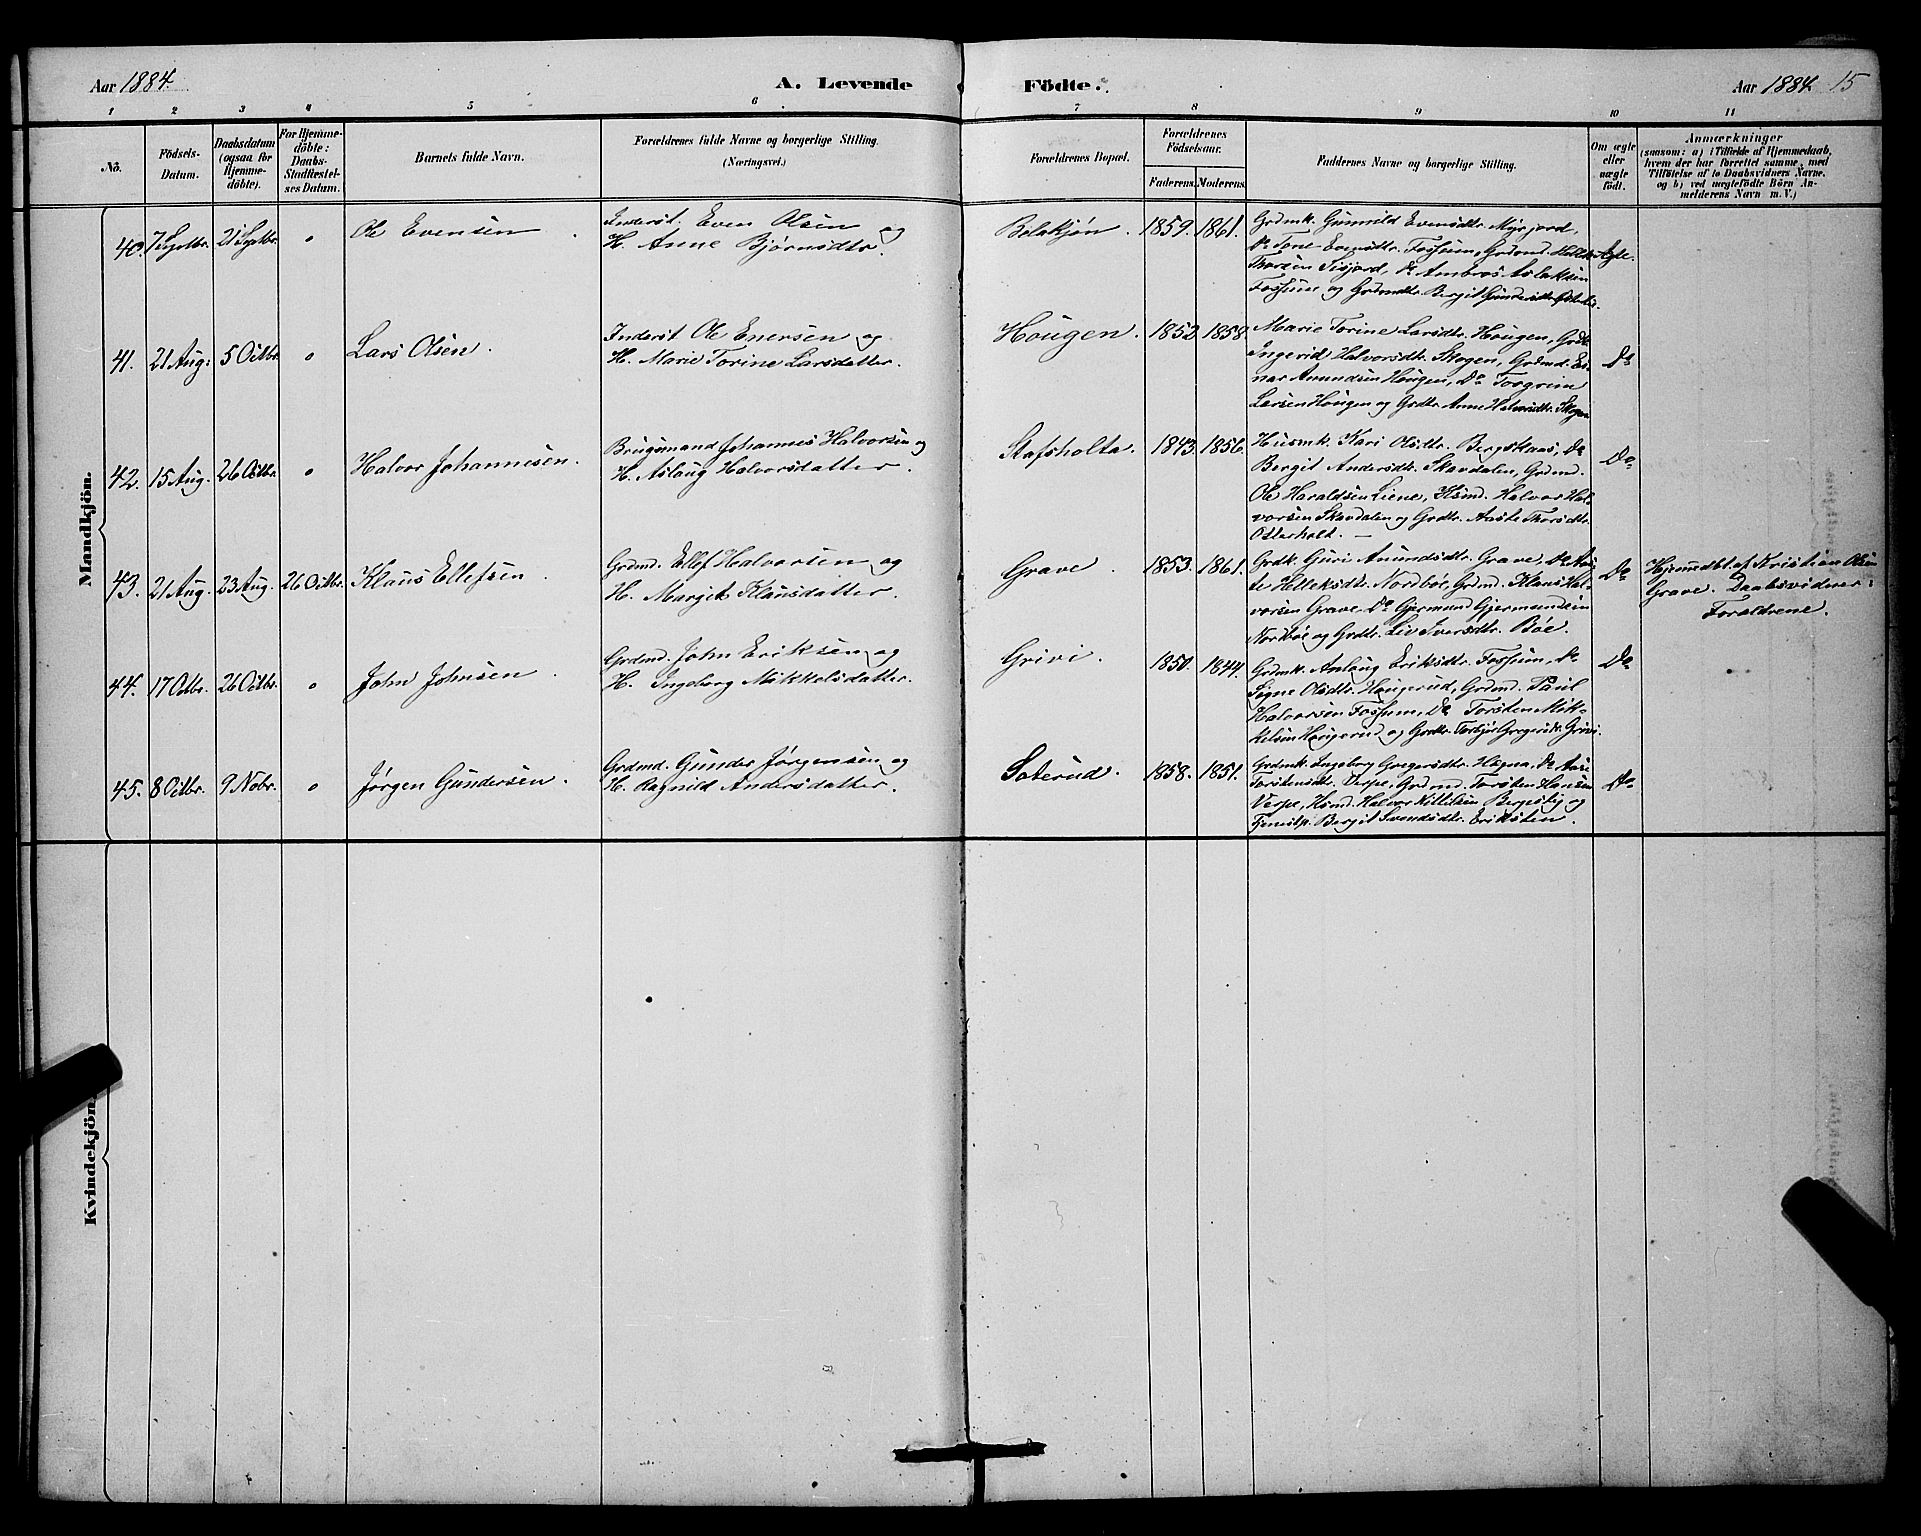 Aar 1884.
A. Levende
Födte.
Aar 1884. 15
1 2 3 4 5 6 7 8 9 10 11
Nô.
Födsels-
Datum.
Daabsdatum
(ogsaa for
Hjemme-
döbte).
For Hjemme-
döbte:
Daabs-
Stadfæstel-
ses Datum.
Barnets fulde Navn.
Forældrenes fulde Navne og borgerlige Stilling.
(Næringsvei.)
Forældrenes Bopæl.
Forældrenes
Födselsaar.
Faderens. Moderens.
Faddernes Navne og borgerlige Stilling.
Om ægte
eller
uægte
födt.
Anmærkninger
(saasom: a) i Tilfælde af Hjemmedaab,
hvem der har forrettet samme, med
Tilföielse af to Daabsvidners Navne,
og b) ved uægtefödte Börn An-
melderens Navn m. V.)
Mandkjön.
40. 7 Septbr. 21 Septbr. o Ole Evensen.
Inderst. Even Olsen og
H. Anne Bjørnsdtr.
Bolakjøn. 1859. 1861.
Grdmk. Gunnild Evensdtr. Myrjord,
Do Tone Evensdtr. Fossum, Grdmd.
Thorsen Sisjord, Do Ambros Aslaksen
Fossum og Grdmdtr. Bergit
Ægte.
41. 21 Aug. 5 Octbr. o Lars Olsen.
Inderst Ole Enersen og
H. Marie Torine Larsdatter.
Hougen. 1852 1858.
Marie Torine Larsdtr. Hougen, Grdk.
Ingerid Halvorsdtr. Skogen, Grdmd. Ei-
nar Amundsen Hougen, Do Torgrim
Larsen Hougen og Grdtr. Anne Halvorsdtr. Skogen
Do
42. 15 Aug. 26 Octbr. o Halvor Johannesen.
Brugsmand Johannes Halvorsen og
H. Aslaug Halvorsdatter.
Stafsholta. 1843. 1856.
Husmk. Kari Olsdtr. Bergskaas, Do
Bergit Andersdtr. Skavdalen, Grdmd.
Ole Haraldsen Liene, Hsmd. Halvor Hal-
vorsen Skavdalen og Grdtr. Aaste Thorsdtr.
Osterholt. —
Do
43. 21 Aug. 23 Aug. 26 Octbr. Klaus Ellefsen.
Grdmd. Ellef Halvorsen og
H. Margit Klausdatter.
Grave. 1853. 1861.
Grdk. Guri Amundsdtr. Grave, Do Aas-
te Helleksdtr. Nordbøe, Grdmd. Klaus Hal-
vorsen Grave, Do Gjermund Gjermundsen
Nordbøe og Grdtr. Liv Iversdtr. Bøe.
Do
Hjemmedbt af Kristian Olsen
Grave. Daabsvidner:
Forældrene.
44. 17 Octbr. 26 Octbr. o John Johnsen.
Grdmd. John Eriksen og
H. Ingeborg Mikkelsdatter.
Grivi. 1850. 1844.
Grdmk. Anlaug Eriksdtr. Fossum, Do
Signe Olsdtr. Haugerud, Grdmd. Paul
Halvorsen Fossum, Do Torsten Mik-
kelsen Haugerud og Grdtr. Torbjør Gregersdtr. Grivi.
Do
45. 8 Octbr. 9 Nobr. o Jørgen Gundersen.
Grdmd. Gunder Jørgensen og
H. Ragnild Andersdatter.
Soterud. 1858. 1851.
Grdmk. Ingeborg Gregersdtr. Hegna, Do Aase
Torstensdtr. Verpe, Grdmd. Torsten Hansen
Verpe, Hsmd. Halvor Kittilsen Bergestig og
Tjenestp. Bergit Svendsdtr. Eriksten.
Do
Kvindekjön.